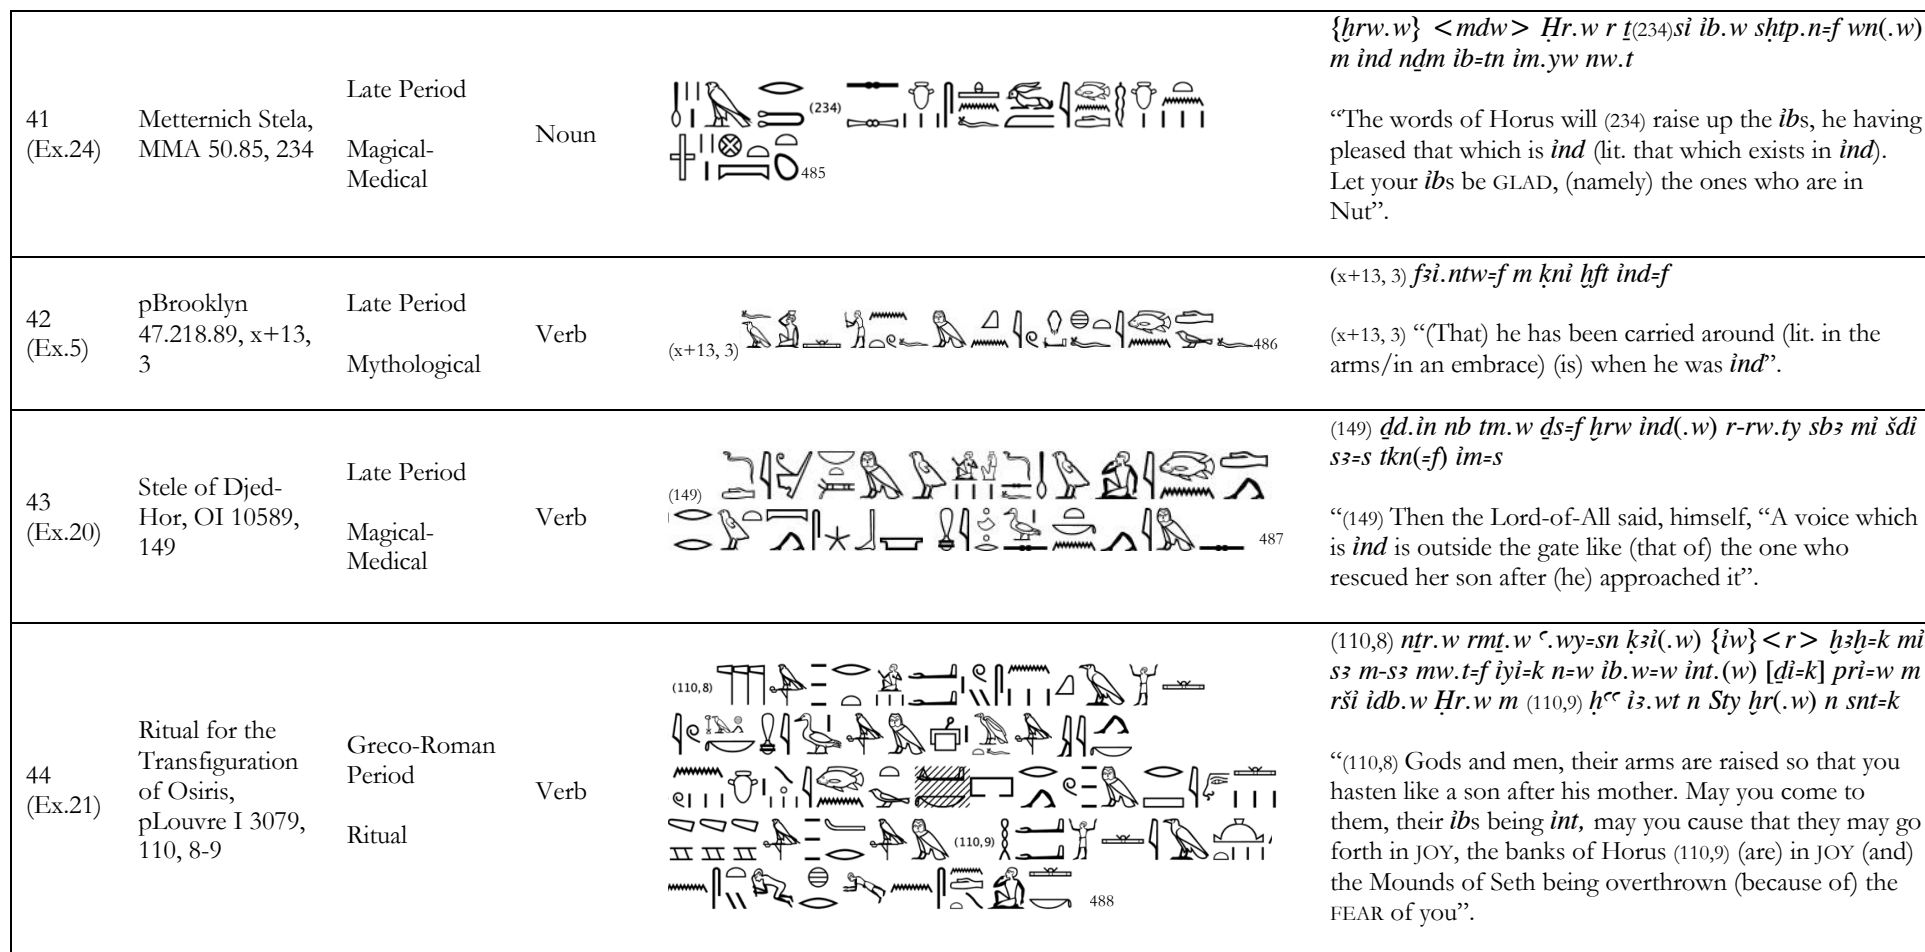 41
(Ex.24)
Metternich Stela,
MMA 50.85, 234
Late Period
Magical-
Medical
Noun
(234)
485
{ḫrw.w} <mdw> Ḥr.w r ṯ(234)sỉ ỉb.w sḥtp.n=f wn(.w)
m ỉnd nḏm ỉb=tn ỉm.yw nw.t
“The words of Horus will (234) raise up the ỉbs, he having
pleased that which is ỉnd (lit. that which exists in ỉnd).
Let your ỉbs be GLAD, (namely) the ones who are in
Nut”.
42
(Ex.5)
pBrooklyn
47.218.89, x+13,
3
Late Period
Mythological
Verb
(x+13, 3)
486
(x+13, 3) fꜣỉ.ntw=f m ḳnỉ ḫft ỉnd=f
(x+13, 3) “(That) he has been carried around (lit. in the
arms/in an embrace) (is) when he was ỉnd”.
43
(Ex.20)
Stele of Djed-
Hor, OI 10589,
149
Late Period
Magical-
Medical
Verb
(149)
487
(149) ḏd.ỉn nb tm.w ḏs=f ḫrw ỉnd(.w) r-rw.ty sbꜣ mỉ šdỉ
sꜣ=s tkn(=f) ỉm=s
“(149) Then the Lord-of-All said, himself, “A voice which
is ỉnd is outside the gate like (that of) the one who
rescued her son after (he) approached it”.
44
(Ex.21)
Ritual for the
Transfiguration
of Osiris,
pLouvre I 3079,
110, 8-9
Greco-Roman
Period
Ritual
Verb
(110,8)
(110,9)
488
(110,8) nṯr.w rmṯ.w ꜥ.wy=sn ḳꜣỉ(.w) {ỉw}<r> ḥꜣḫ=k mỉ
sꜣ m-sꜣ mw.t=f ỉyỉ=k n=w ỉb.w=w ỉnt.(w) [dỉ=k] prỉ=w m
ršỉ ỉdb.w Ḥr.w m (110,9) ḥꜥꜥ ỉꜣ.wt n Sty ḫr(.w) n snt=k
“(110,8) Gods and men, their arms are raised so that you
hasten like a son after his mother. May you come to
them, their ỉbs being ỉnt, may you cause that they may go
forth in JOY, the banks of Horus (110,9) (are) in JOY (and)
the Mounds of Seth being overthrown (because of) the
FEAR of you”.